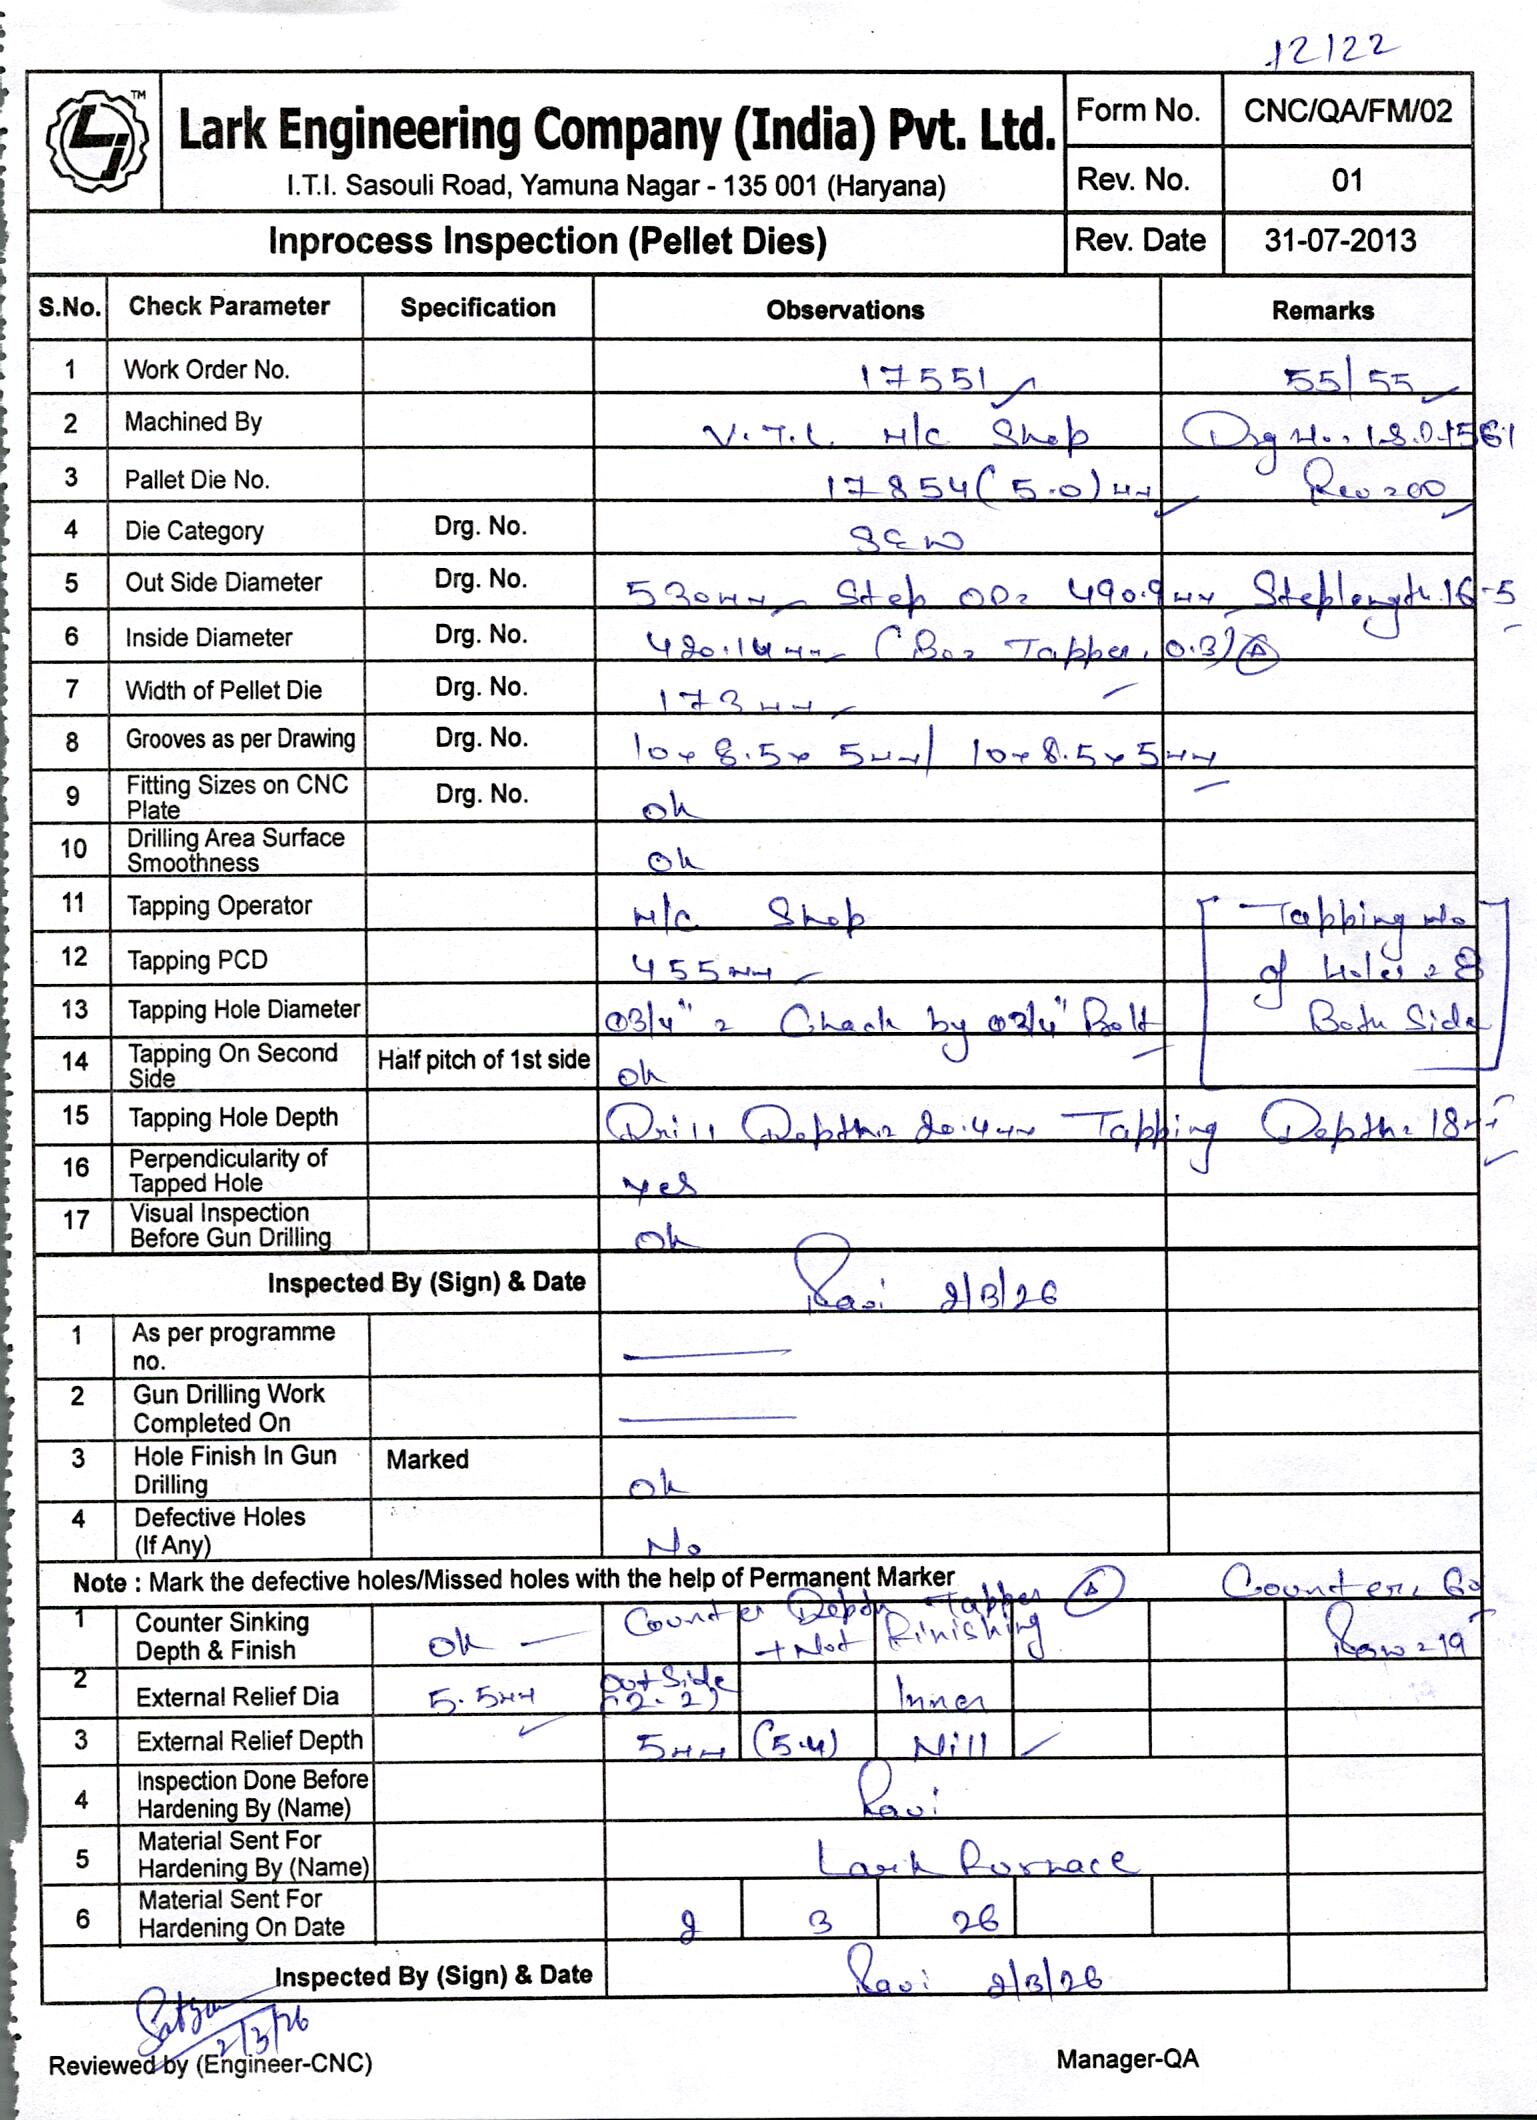 12122
TM
Lark Engineering Company (India) Pvt. Ltd.
I.T.I. Sasouli Road, Yamuna Nagar - 135 001 (Haryana)
Form No. CNC/QA/FM/02
Rev. No. 01
Inprocess Inspection (Pellet Dies) Rev. Date 31-07-2013
S.No. Check Parameter Specification Observations Remarks
1 Work Order No. 17551 55/55
2 Machined By V.T.L M/C Shop Drg No.
3 Pallet Die No. 17854 (5.0) mm Rev = 00
4 Die Category Drg. No.
5 Out Side Diameter Drg. No. 530mm Step OD= 490.9mm Step length. 16.5
6 Inside Diameter Drg. No. 420.14mm Tapper. 0.3) A
7 Width of Pellet Die Drg. No. 173 mm
8 Grooves as per Drawing Drg. No. 10x 8.5x 5mm/ 10x8.5x5mm
9 Fitting Sizes on CNC Plate Drg. No. Ok
10 Drilling Area Surface Smoothness Ok
11 Tapping Operator M/C Shop Tapping No
12 Tapping PCD 455mm of Holes = 8
13 Tapping Hole Diameter Ø3/4" = Chack by Ø3/4" Bolt Both Side
14 Tapping On Second Side Half pitch of 1st side Ok
15 Tapping Hole Depth Drill Depth= 20.4mm Tapping Depth= 18mm
16 Perpendicularity of Tapped Hole Yes
17 Visual Inspection Before Gun Drilling Ok
Inspected By (Sign) & Date Ravi 2/3/26
1 As per programme no.
2 Gun Drilling Work Completed On
3 Hole Finish In Gun Drilling Marked Ok
4 Defective Holes (If Any) No
Note : Mark the defective holes/Missed holes with the help of Permanent Marker
Counter Depth Tapper A Counter.
1 Counter Sinking Depth & Finish Ok + Not Finishing Row = 19
2 External Relief Dia 5.5mm Out Side (2.2) Inner
3 External Relief Depth 5mm (5.4) Nill
4 Inspection Done Before Hardening By (Name) Ravi
5 Material Sent For Hardening By (Name) Lark Furnace
6 Material Sent For Hardening On Date 2 3 26
Inspected By (Sign) & Date Ravi 2/3/26
2/3/26
Reviewed by (Engineer-CNC) Manager-QA